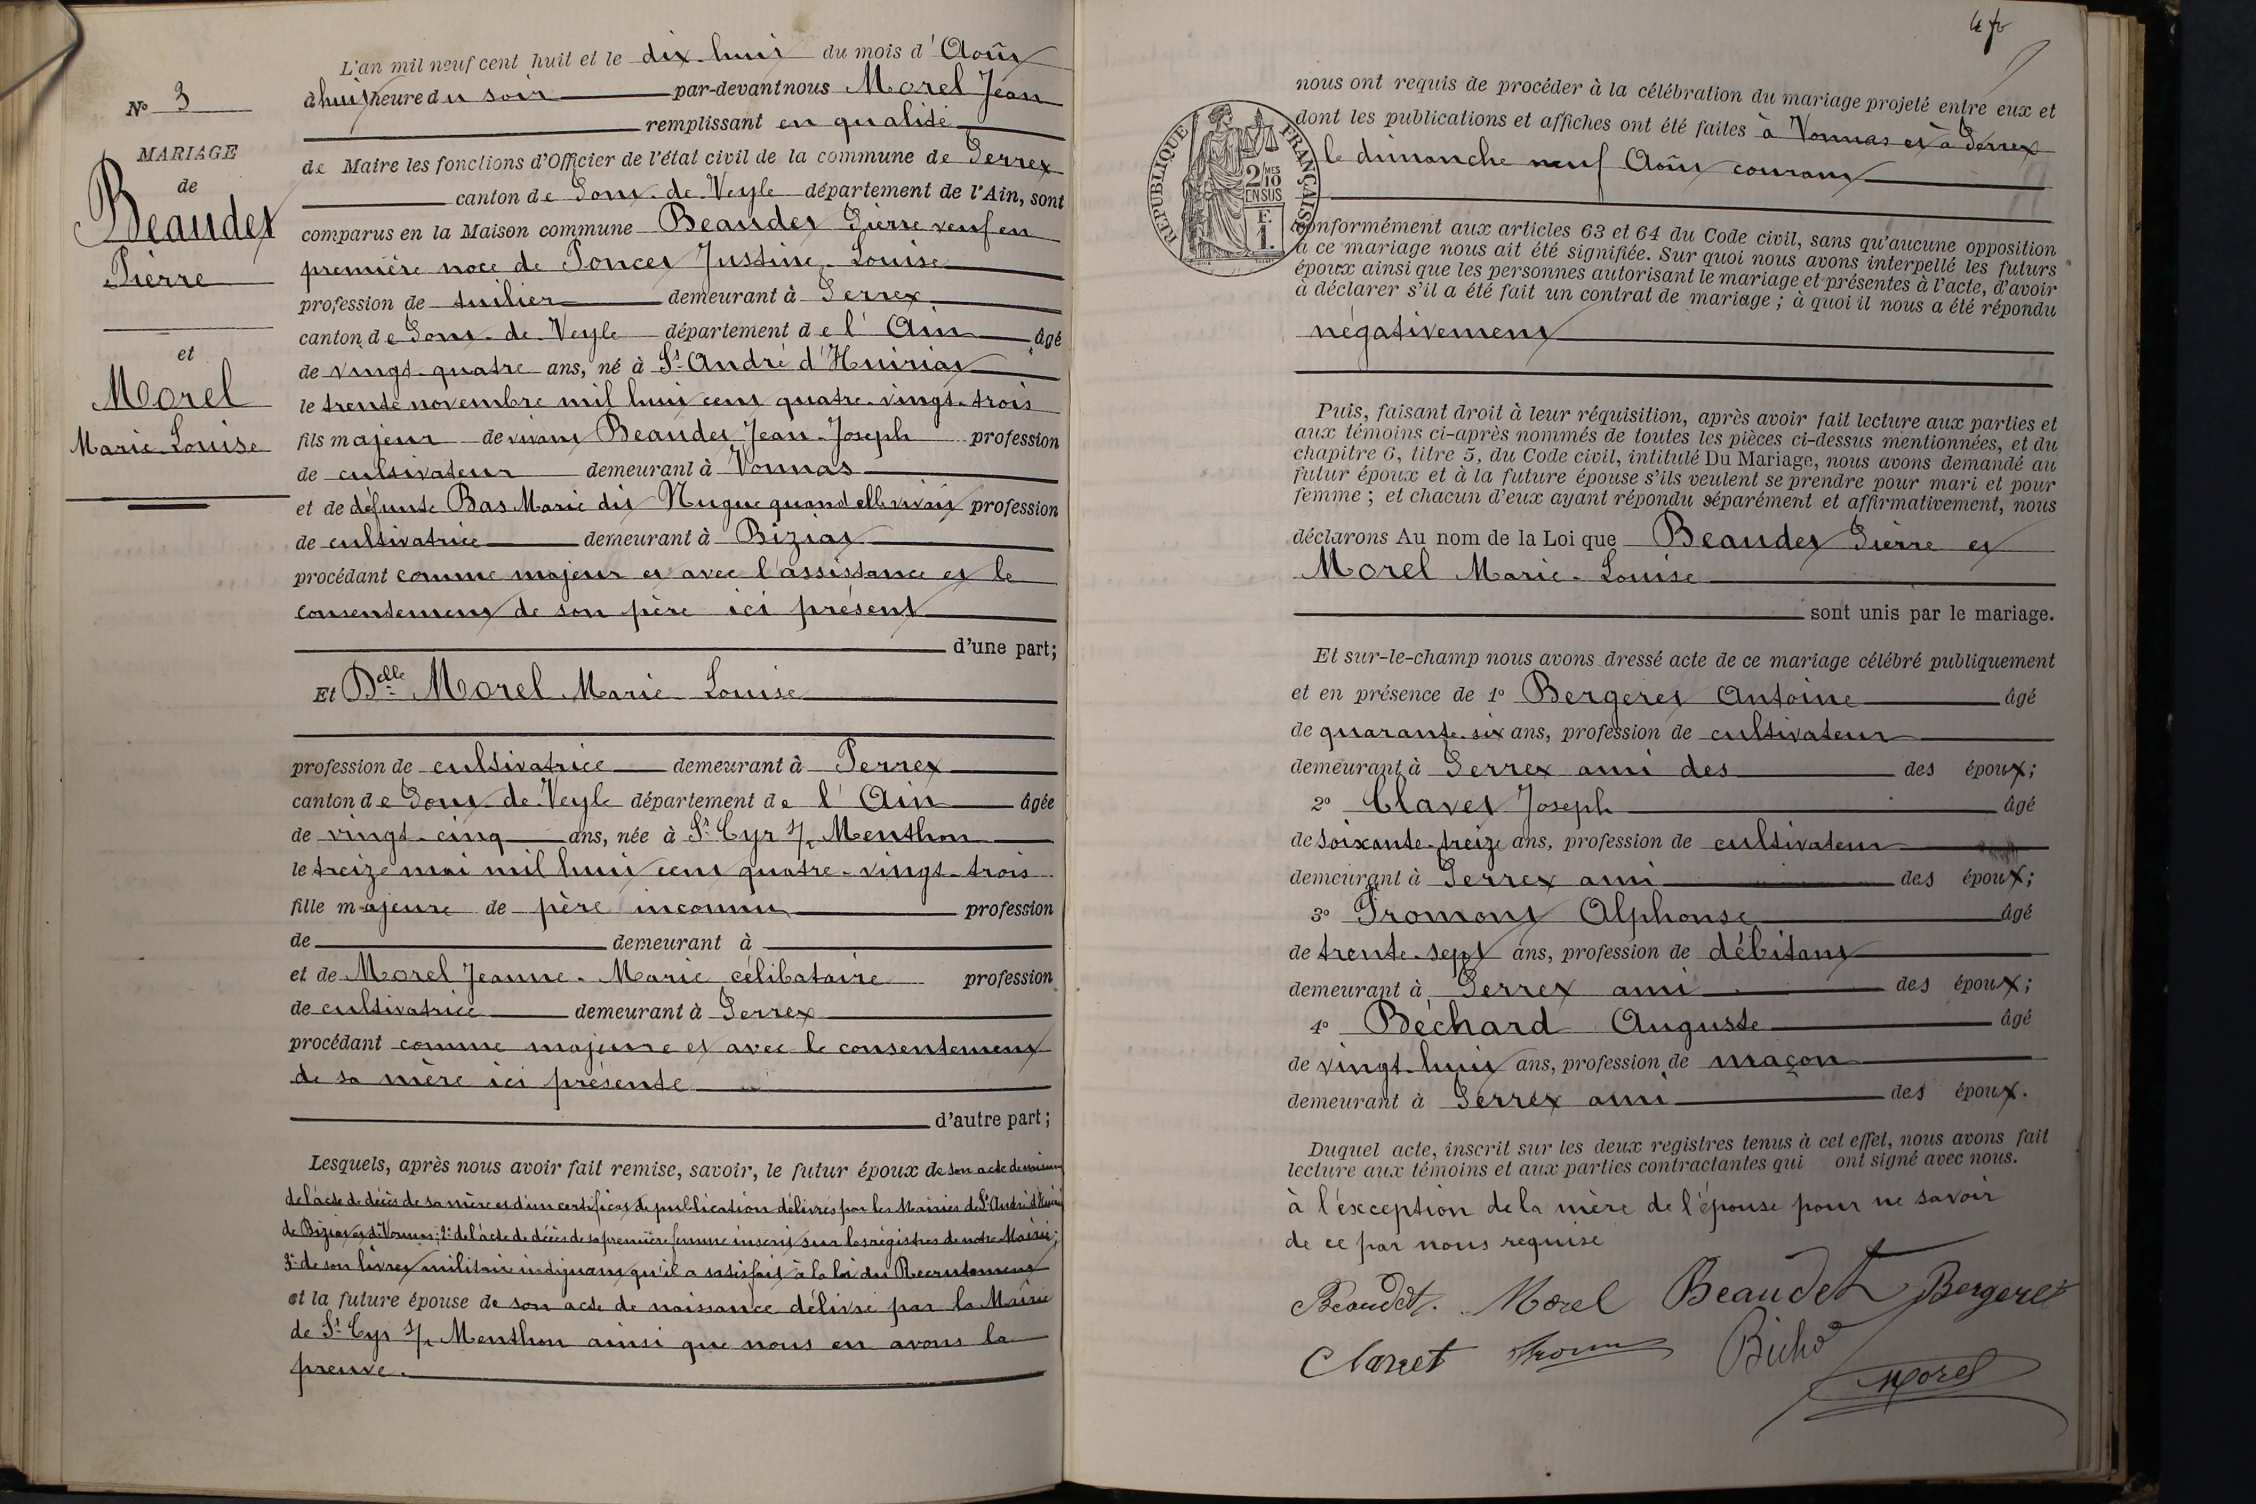 N° 3
MARIAGE
de
Beaudet
Pierre
et
Morel
Marie-Louise
L'an mil neuf cent huit et le dix-huit du mois d'Août
à huit heure du soir par-devant nous Morel Jean
remplissant en qualité
de Maire les fonctions d'Officier de l'état civil de la commune de Perrex
canton de Pont-de-Veyle département de l'Ain, sont
comparus en la Maison commune Beaudet Pierre veuf en
première noce de Poncet Justine-Louise
profession de tuilier demeurant à Perrex
canton de Pont-de-Veyle département de l'Ain âgé
de vingt-quatre ans, né à St André d'Huiriat
le trente novembre mil huit cent quatre-vingt-trois
fils majeur de vivant Beaudet Jean-Joseph profession
de cultivateur demeurant à Vonnas
et de défunte Bas Marie dit Nugue quand elle vivait profession
de cultivatrice demeurant à Biziat
procédant comme majeur et avec l'assistance et le
consentement de son père ici présent
d'une part;
Et Delle Morel Marie-Louise
profession de cultivatrice demeurant à Perrex
canton de Pont-de-Veyle département de l'Ain âgée
de vingt-cinq ans, née à St Cyr s/ Menthon
le treize mai mil huit cent quatre-vingt-trois
fille majeure de père inconnu profession
de demeurant à
et de Morel Jeanne-Marie célibataire profession
de cultivatrice demeurant à Perrex
procédant comme majeure et avec le consentement
de sa mère ici présente
d'autre part;
Lesquels, après nous avoir fait remise, savoir, le futur époux de son acte de naissance
de l'acte de décès de sa mère et d'un certificat de publication délivrés par les Mairies de St André d'Huiriat
de Biziat et de Vonnas; 2° de l'acte de décès de sa première femme inscrit sur les régistres de notre Mairie;
3° de son livret militaire indiquant qu'il a satisfait à la loi du Recrutement
et la future épouse de son acte de naissance délivré par la Mairie
de St Cyr s/ Menthon ainsi que nous en avons la
preuve.
RÉPUBLIQUE FRANÇAISE
2 MES
10
EN SUS
F.
1.
nous ont requis de procéder à la célébration du mariage projeté entre eux et
dont les publications et affiches ont été faites à Vonnas et à Perrex
le dimanche neuf Août courant
conformément aux articles 63 et 64 du Code civil, sans qu'aucune opposition
à ce mariage nous ait été signifiée. Sur quoi nous avons interpellé les futurs
époux ainsi que les personnes autorisant le mariage et présentes à l'acte, d'avoir
à déclarer s'il a été fait un contrat de mariage; à quoi il nous a été répondu
négativement
Puis, faisant droit à leur réquisition, après avoir fait lecture aux parties et
aux témoins ci-après nommés de toutes les pièces ci-dessus mentionnées, et du
chapitre 6, titre 5, du Code civil, intitulé Du Mariage, nous avons demandé au
futur époux et à la future épouse s'ils veulent se prendre pour mari et pour
femme; et chacun d'eux ayant répondu séparément et affirmativement, nous
déclarons Au nom de la Loi que Beaudet Pierre et
Morel Marie-Louise
sont unis par le mariage.
Et sur-le-champ nous avons dressé acte de ce mariage célébré publiquement
et en présence de 1° Bergeret Antoine âgé
de quarante-six ans, profession de cultivateur
demeurant à Perrex ami des des époux;
2° Clavet Joseph âgé
de soixante-treize ans, profession de cultivateur
demeurant à Perrex ami des époux;
3° Tromont Alphonse âgé
de trente-sept ans, profession de débitant
demeurant à Perrex ami des époux;
4° Béchard Auguste âgé
de vingt-huit ans, profession de maçon
demeurant à Perrex ami des époux.
Duquel acte, inscrit sur les deux registres tenus à cet effet, nous avons fait
lecture aux témoins et aux parties contractantes qui ont signé avec nous.
à l'exception de la mère de l'épouse pour ne savoir
de ce par nous requise
Beaudet. Morel Beaudet Bergeret
Clavet
Morel